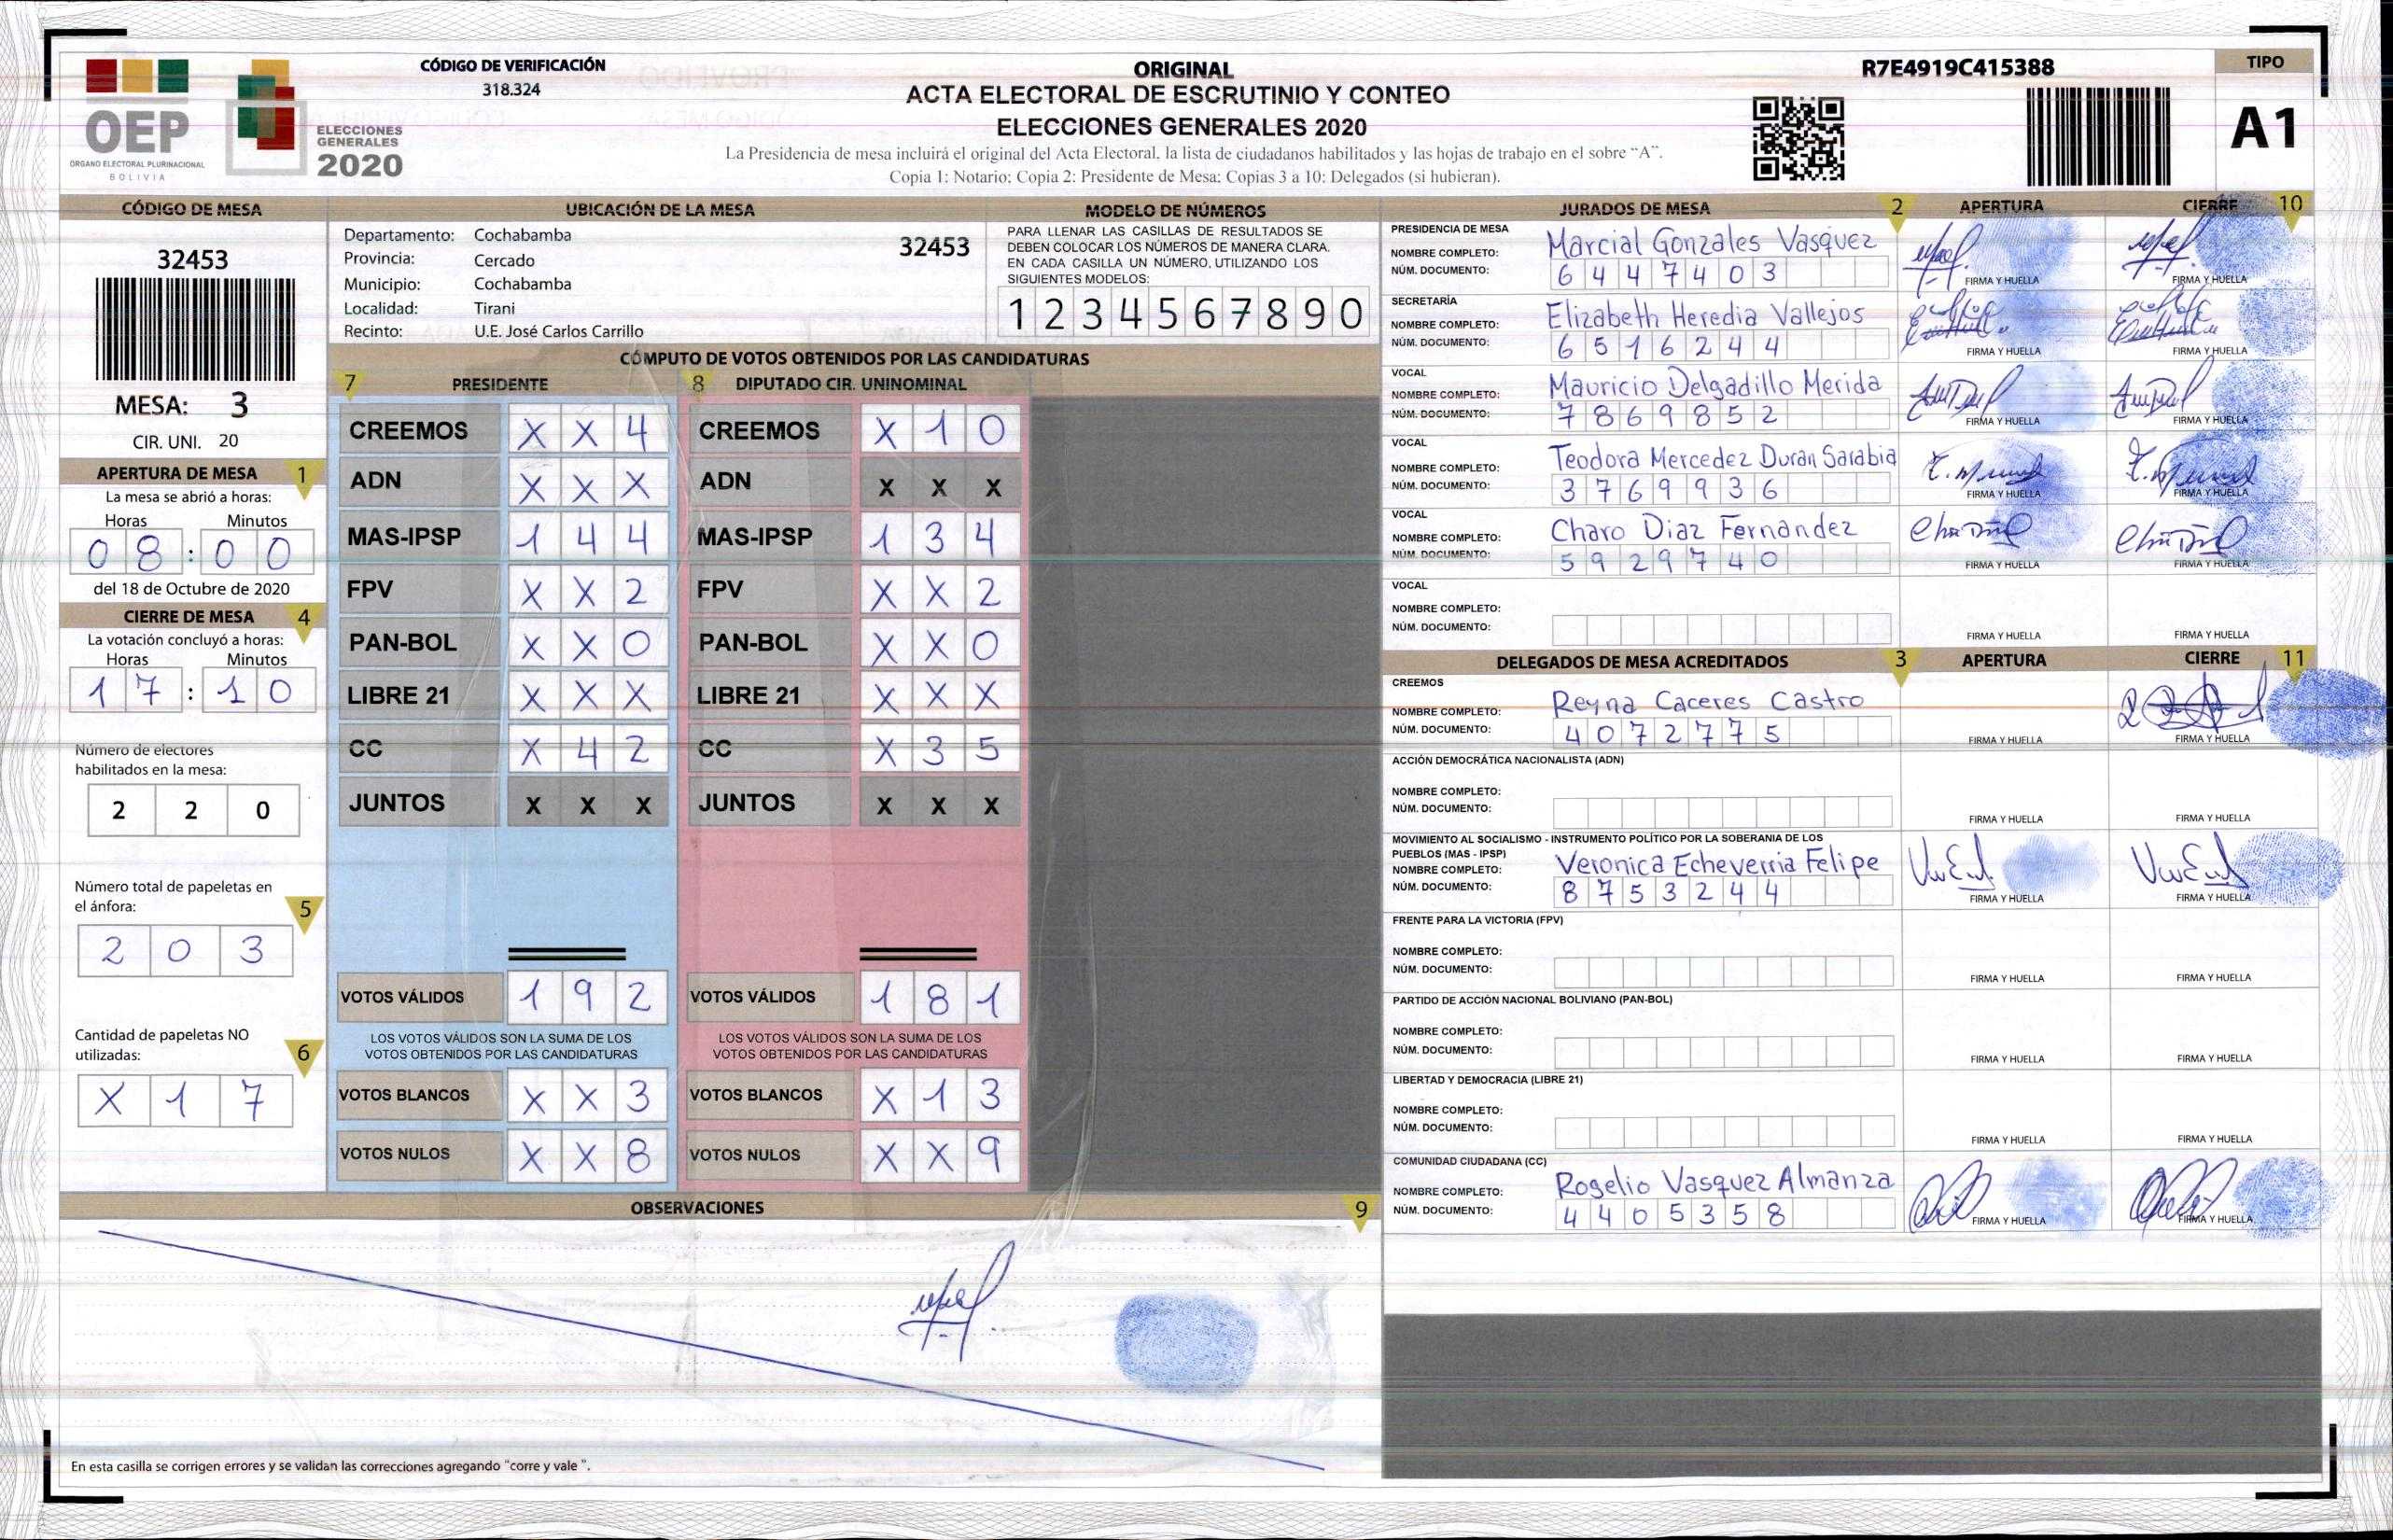 CÓDIGO DE VERIFICACIÓN
318.324
ORIGINAL
ACTA ELECTORAL DE ESCRUTINIO Y CONTEO
ELECCIONES GENERALES 2020
La Presidencia de mesa incluirá el original del Acta Electoral, la lista de ciudadanos habilitados y las hojas de trabajo en el sobre “A”.
Copia 1: Notario; Copia 2: Presidente de Mesa; Copias 3 a 10: Delegados (si hubieran).
R7E4919C415388
TIPO
A1
OEP
ORGANO ELECTORAL PLURINACIONAL
BOLIVIA
ELECCIONES
GENERALES
2020
CÓDIGO DE MESA
32453
MESA: 3
CIR. UNI. 20
APERTURA DE MESA 1
La mesa se abrió a horas:
Horas Minutos
0 8 : 0 0
del 18 de Octubre de 2020
CIERRE DE MESA 4
La votación concluyó a horas:
Horas Minutos
1 7 : 1 0
Número de electores
habilitados en la mesa:
2 2 0
Número total de papeletas en
el ánfora: 5
2 0 3
Cantidad de papeletas NO
utilizadas: 6
X 1 7
UBICACIÓN DE LA MESA
Departamento: Cochabamba 32453
Provincia: Cercado
Municipio: Cochabamba
Localidad: Tirani
Recinto: U.E. José Carlos Carrillo
MODELO DE NÚMEROS
PARA LLENAR LAS CASILLAS DE RESULTADOS SE
DEBEN COLOCAR LOS NÚMEROS DE MANERA CLARA.
EN CADA CASILLA UN NÚMERO, UTILIZANDO LOS
SIGUIENTES MODELOS:
1 2 3 4 5 6 7 8 9 0
CÓMPUTO DE VOTOS OBTENIDOS POR LAS CANDIDATURAS
7 PRESIDENTE 8 DIPUTADO CIR. UNINOMINAL
CREEMOS X X 4 CREEMOS X 1 0
ADN X X X ADN X X X
MAS-IPSP 1 4 4 MAS-IPSP 1 3 4
FPV X X 2 FPV X X 2
PAN-BOL X X 0 PAN-BOL X X 0
LIBRE 21 X X X LIBRE 21 X X X
CC X 4 2 CC X 3 5
JUNTOS X X X JUNTOS X X X
VOTOS VÁLIDOS 1 9 2 VOTOS VÁLIDOS 1 8 1
LOS VOTOS VÁLIDOS SON LA SUMA DE LOS LOS VOTOS VÁLIDOS SON LA SUMA DE LOS
VOTOS OBTENIDOS POR LAS CANDIDATURAS VOTOS OBTENIDOS POR LAS CANDIDATURAS
VOTOS BLANCOS X X 3 VOTOS BLANCOS X 1 3
VOTOS NULOS X X 8 VOTOS NULOS X X 9
OBSERVACIONES 9
En esta casilla se corrigen errores y se validan las correcciones agregando "corre y vale ".
JURADOS DE MESA 2 APERTURA CIERRE 10
PRESIDENCIA DE MESA
NOMBRE COMPLETO: Marcial Gonzales Vasquez
NÚM. DOCUMENTO: 6 4 4 7 4 0 3 FIRMA Y HUELLA FIRMA Y HUELLA
SECRETARÍA
NOMBRE COMPLETO: Elizabeth Heredia Vallejos
NÚM. DOCUMENTO: 6 5 1 6 2 4 4 FIRMA Y HUELLA FIRMA Y HUELLA
VOCAL
NOMBRE COMPLETO: Mauricio Delgadillo Merida
NÚM. DOCUMENTO: 7 8 6 9 8 5 2 FIRMA Y HUELLA FIRMA Y HUELLA
VOCAL
NOMBRE COMPLETO: Teodora Mercedez Duran Sarabia
NÚM. DOCUMENTO: 3 7 6 9 9 3 6 FIRMA Y HUELLA FIRMA Y HUELLA
VOCAL
NOMBRE COMPLETO: Charo Diaz Fernandez
NÚM. DOCUMENTO: 5 9 2 9 7 4 0 FIRMA Y HUELLA FIRMA Y HUELLA
VOCAL
NOMBRE COMPLETO:
NÚM. DOCUMENTO: FIRMA Y HUELLA FIRMA Y HUELLA
DELEGADOS DE MESA ACREDITADOS 3 APERTURA CIERRE 11
CREEMOS
NOMBRE COMPLETO: Reyna Caceres Castro
NÚM. DOCUMENTO: 4 0 7 2 7 7 5 FIRMA Y HUELLA FIRMA Y HUELLA
ACCIÓN DEMOCRÁTICA NACIONALISTA (ADN)
NOMBRE COMPLETO:
NÚM. DOCUMENTO: FIRMA Y HUELLA FIRMA Y HUELLA
MOVIMIENTO AL SOCIALISMO - INSTRUMENTO POLÍTICO POR LA SOBERANIA DE LOS
PUEBLOS (MAS - IPSP)
NOMBRE COMPLETO: Veronica Echeverria Felipe
NÚM. DOCUMENTO: 8 7 5 3 2 4 4 FIRMA Y HUELLA FIRMA Y HUELLA
FRENTE PARA LA VICTORIA (FPV)
NOMBRE COMPLETO:
NÚM. DOCUMENTO: FIRMA Y HUELLA FIRMA Y HUELLA
PARTIDO DE ACCIÓN NACIONAL BOLIVIANO (PAN-BOL)
NOMBRE COMPLETO:
NÚM. DOCUMENTO: FIRMA Y HUELLA FIRMA Y HUELLA
LIBERTAD Y DEMOCRACIA (LIBRE 21)
NOMBRE COMPLETO:
NÚM. DOCUMENTO: FIRMA Y HUELLA FIRMA Y HUELLA
COMUNIDAD CIUDADANA (CC)
NOMBRE COMPLETO: Rogelio Vasquez Almanza
NÚM. DOCUMENTO: 4 4 0 5 3 5 8 FIRMA Y HUELLA FIRMA Y HUELLA